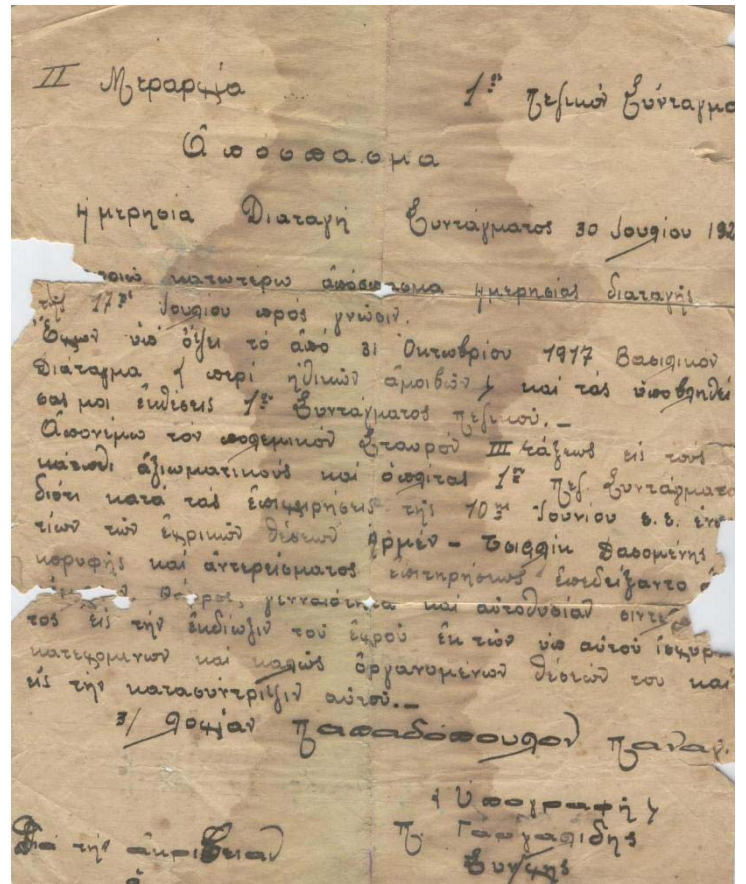 ΙΙ Μεραρχία 1ον Πεζικόν Σύνταγμα
Απόσπασμα
Ημερησία Διαταγή Συντάγματος 30 Ιουλίου 192
κατωτέρω ἀπόσπασμα ημερησίας διαταγῆς
τῆς 17ης Ιουλίου πρός γνῶσιν.
Ἔχων ὑπ' ὄψει τό ἀπό 31 Οκτωβρίου 1917 Βασιλικόν
Διάταγμα { περί ἠθικῶν ἀμοιβῶν } και τάς ὑποβληθεί
σας μοι ἐκθέσεις 1ου Συντάγματος Πεζικοῦ._
Απονέμω τόν πολεμικόν Σταυρόν ΙΙΙ τάξεως εἰς τους
κάτωθι ἀξιωματικούς καί ὁπλίτας 1ου Πεζ. Συντάγματο
διότι κατά τάς ἐπιχειρήσεις τῆς 10ης Ιουνίου ε.ε.
τίων τῶν ἐχθρικῶν θέσεων Αρμέν - Τσιφλίκ Δασομένης
κορυφῆς καί ἀντερείσματος ἐπιτηρήσεως ἐπεδείξαντο
θάρρος, γενναιότητα καί αὐτοθυσίαν
τος εἰς τήν ἐκδίωξιν τοῦ ἐχθροῦ ἐκ τῶν ὑπ αὐτοῦ ἰσχυρῶ
κατεχομενων καί καλῶς ὀργανομένων θέσεών του καί
εἰς τήν κατασύντριψιν αὐτοῦ._
3/ Λοχίαν Παπαδόπουλον Παναγ.
{ Υπογραφή }
Π. Γαργαλίδης
Διά τήν ἀκρίβειαν Συν/χης